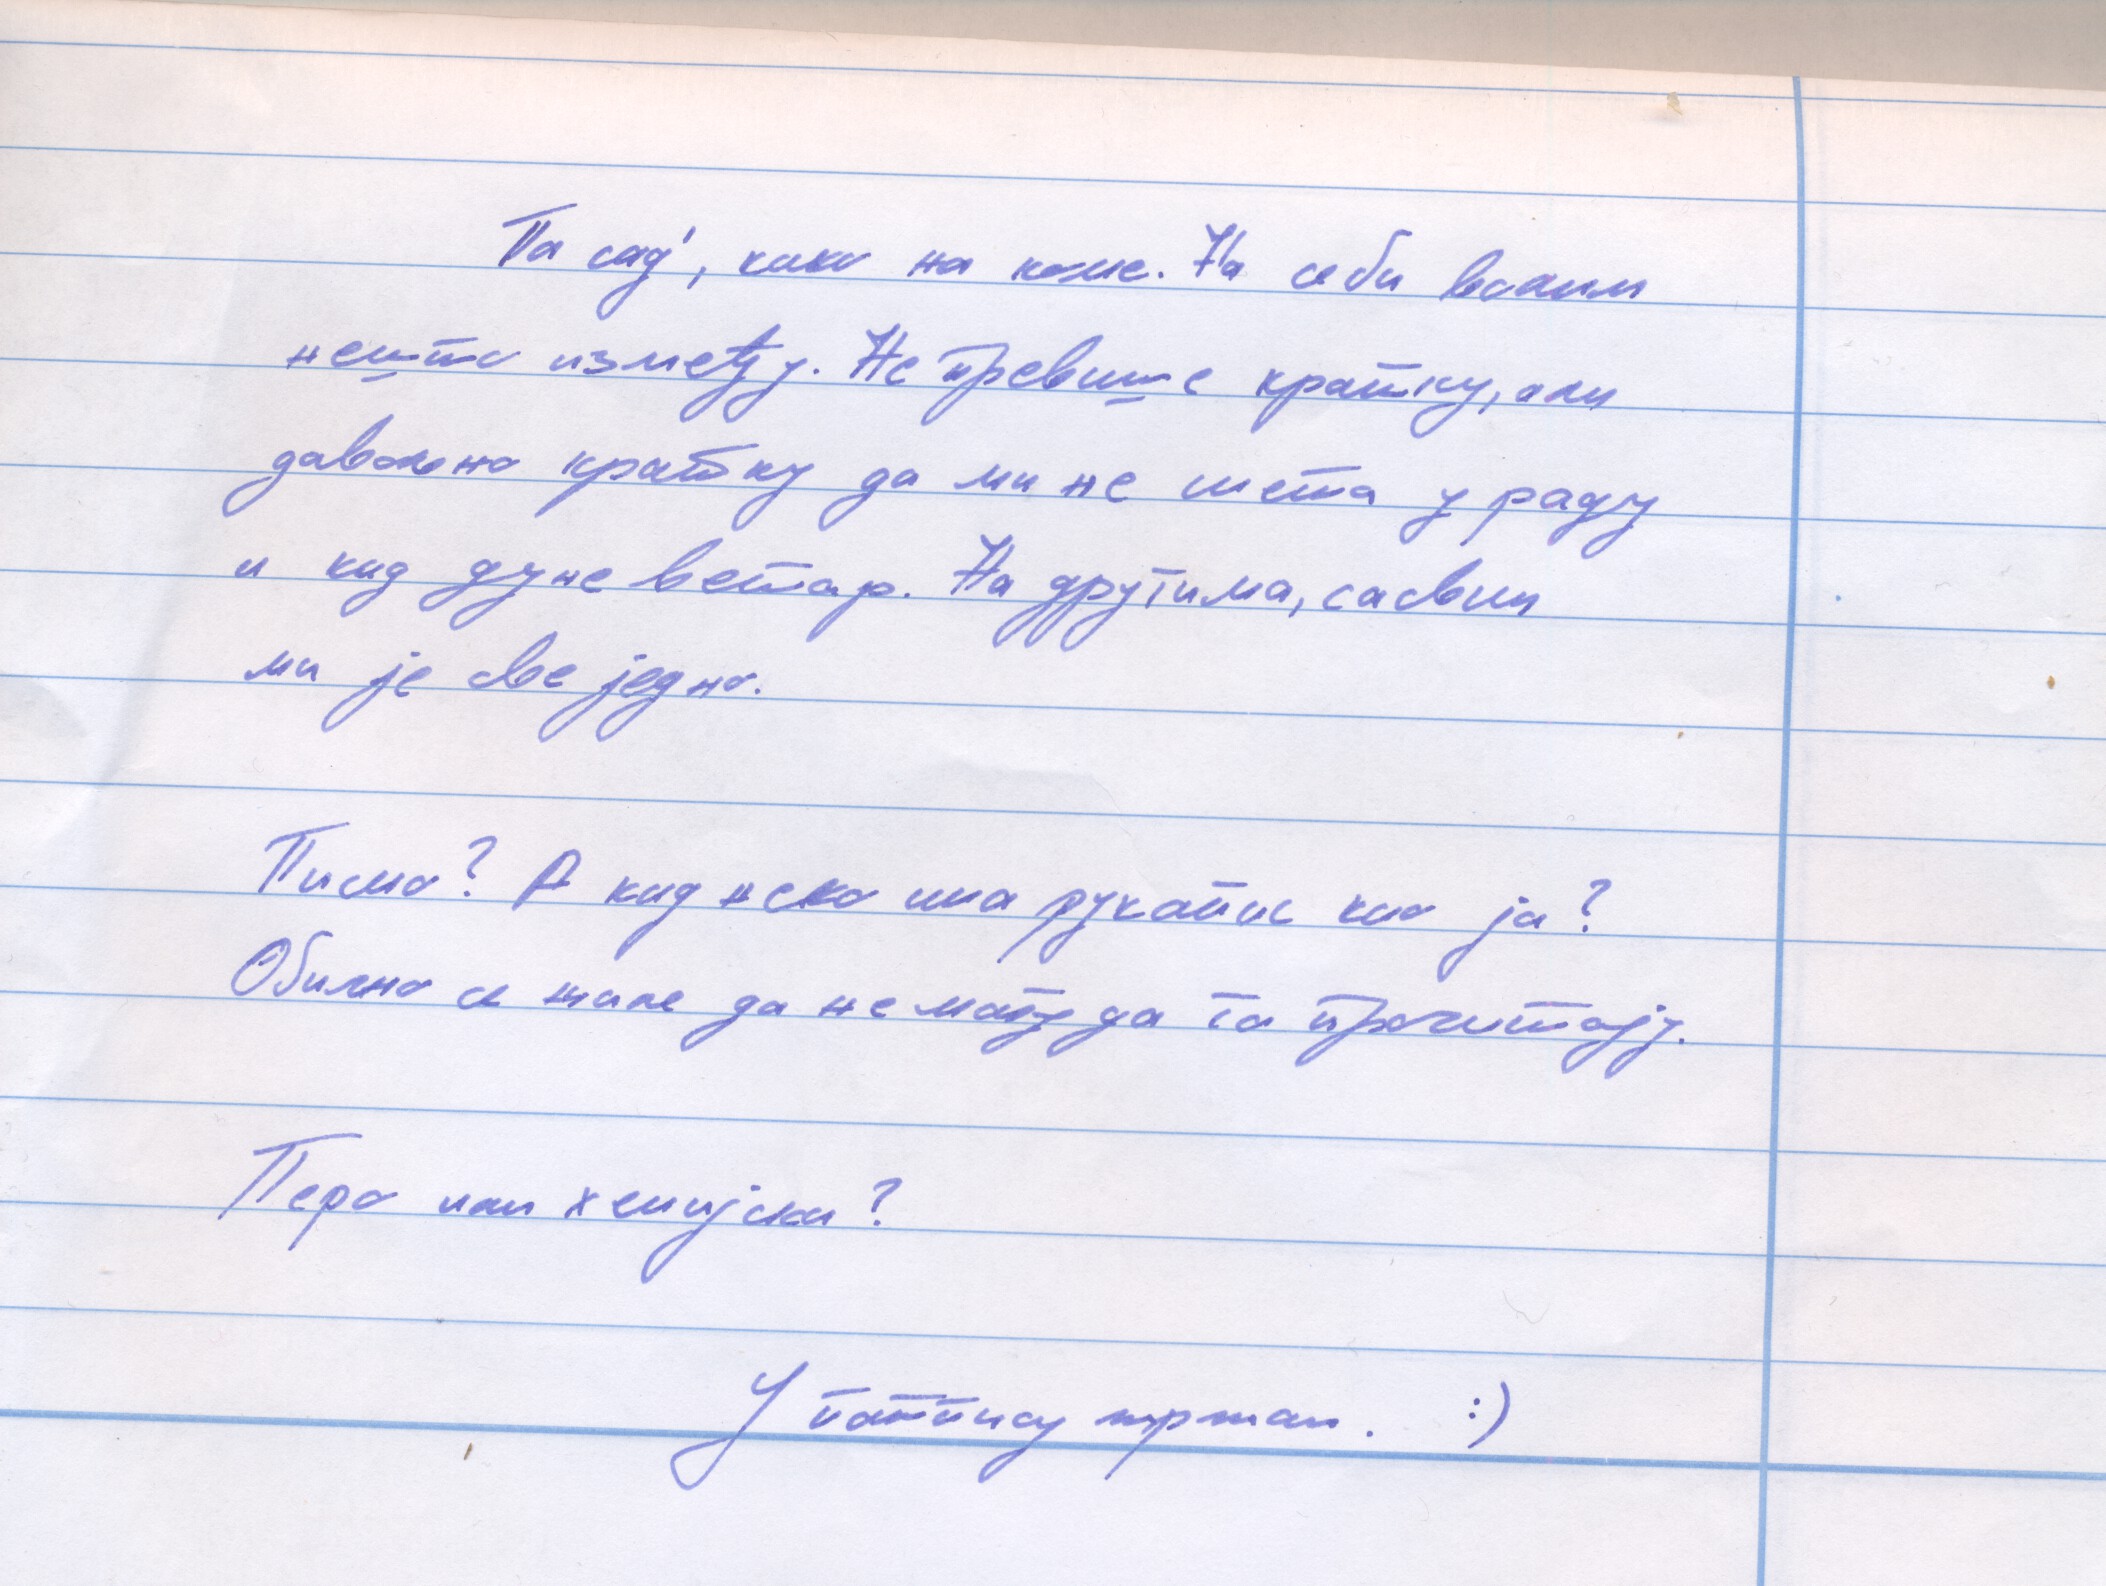 Па сад', како на коме. На себи волим
нешто између. Не превише кратку, али
довољно кратку да ми не смета у раду
и кад дуне ветар. На другима, сасвим
ми је свеједно.
Писмо? А кад неко има рукопис као ја?
Обично се жале да не могу да га прочитају.
Перо или хемијски?
У потпису
:)